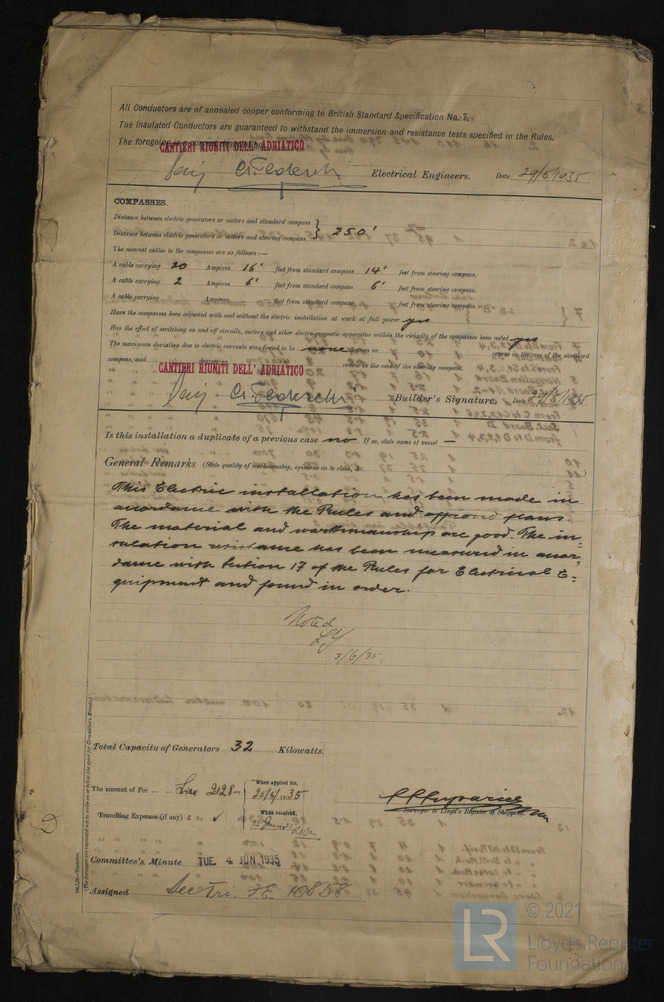 All Conductors are of annealed copper conforming to British Standard Specification No. 7.
The Insulated Conductors are guaranteed to withstand the immersion and resistance tests specified in the Rules.
The foregoing
CANTIERI RIUNITI DELL' ADRIATICO
Electrical Engineers. Date 29/5/1935
COMPASSES.
Distance between electric generators or motors and standard compass
Distance between electric generators or motors and steering compass } 250'
The nearest cables to the compasses are as follows:—
A cable carrying 20 Ampères 16' feet from standard compass 14' feet from steering compass.
A cable carrying 2 Ampères 6' feet from standard compass 6' feet from steering compass.
A cable carrying Ampères feet from standard compass feet from steering compass.
Have the compasses been adjusted with and without the electric installation at work at full power yes
Has the effect of switching on and off circuits, motors and other electro magnetic apparatus within the vicinity of the compasses been noted yes
The maximum deviation due to electric currents was found to be none degrees on course in the case of the standard
compass, and degrees on course in the case of the steering compass.
CANTIERI RIUNITI DELL' ADRIATICO
Builder's Signature. Date 29/5/1935
Is this installation a duplicate of a previous case no If so, state name of vessel —
General Remarks (State quality of workmanship, opinions as to class, &c.
This Electric installation has been made in
accordance with the Rules and approved plans.
The material and workmanship are good. The in-
sulation resistance has been measured in accor-
dance with Section 17 of the Rules for Electrical E-
quipment and found in order.
Noted
3/6/35
Total Capacity of Generators 32 Kilowatts.
The amount of Fee ... ... Lire 2128-
When applied for,
25/5/1935
Travelling Expenses (if any) £ ✓
When received,
Surveyor to Lloyd's Register of Shipping.
Committee's Minute TUE 4 JUN 1935
Assigned See Tri. F.E. 10858
© 2021
LR
Lloyd's Register
Foundation